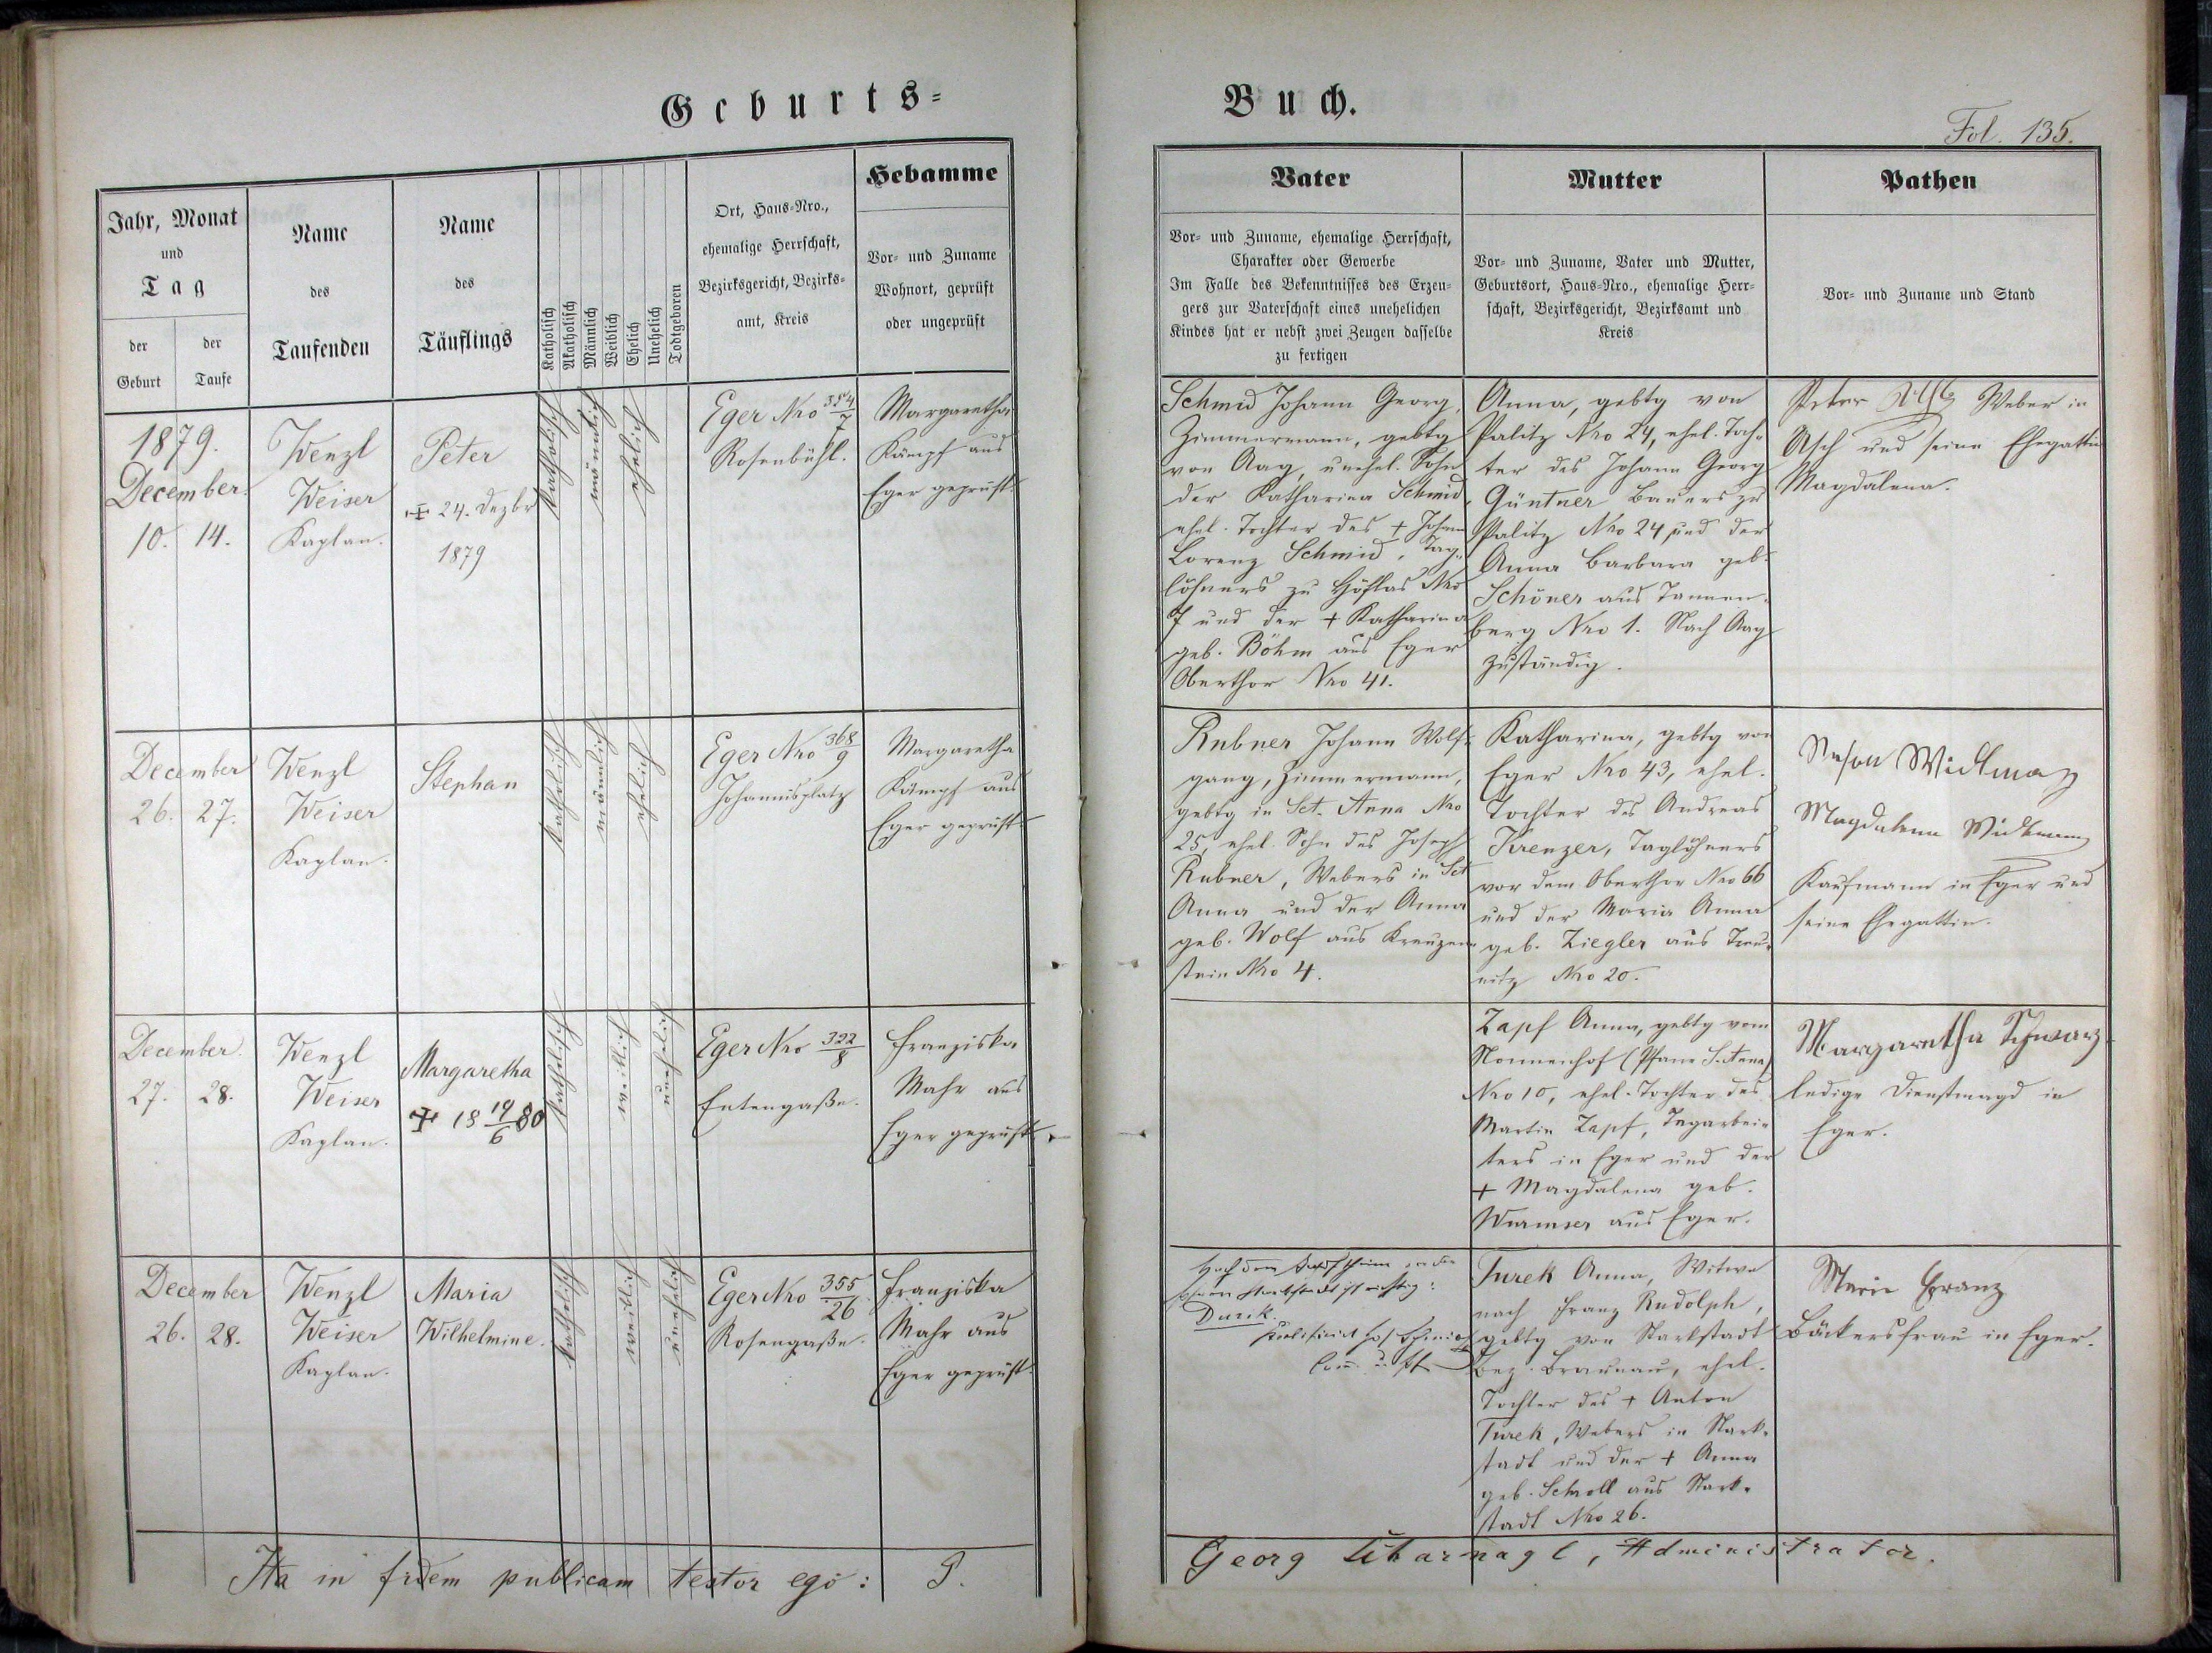 Geburts-
Buch.
Fol. 135.
Jahr, Monat
und
Tag
der
Geburt
der
Taufe
Name
des
Taufenden
Name
des
Täuflings
Katholisch
Akatholisch
Männlich
Weiblich
Ehelich
Unehelich
Todtgeboren
Ort, Haus-Nro.,
ehemalige Herrschaft,
Bezirksgericht, Bezirks-
amt, Kreis
Hebamme
Vor- und Zuname
Wohnort, geprüft
oder ungeprüft
Vater
Vor- und Zuname, ehemalige Herrschaft,
Charakter oder Gewerbe
Im Falle des Bekenntnisses des Erzeu-
gers zur Vaterschaft eines unehelichen
Kindes hat er nebst zwei Zeugen dasselbe
zu fertigen
Mutter
Vor- und Zuname, Vater und Mutter,
Geburtsort, Haus-Nro., ehemalige Herr-
schaft, Bezirksgericht, Bezirksamt und
Kreis
Pathen
Vor- und Zuname und Stand
1879.
December.
10. 14.
Wenzl
Weiser
Kaplan.
Peter
+ 24. Dezbr
1879
katholisch
männlich
ehelich
Eger Nro 354/7
Rosenbühl.
Margaretha
Kämpf aus
Eger geprüft.
Schmid Johann Georg,
Zimmermann, gebtg
von Aag, unehel. Sohn
der Katharina Schmid,
ehel. Tochter des + Johann
Lorenz Schmid, Tag-
löhners zu Höflas Nro
7 und der + Katharina
geb. Böhm aus Eger
Oberthor Nro 41.
Anna, gebtg von
Palitz Nro 24, ehel. Toch-
ter des Johann Georg
Güntner Bauers zu
Palitz Nro 24 und der
Anna Barbara geb.
Schöner aus Tannen-
berg Nro 1. Nach Aag
zuständig.
Peter Weber in
Asch und seine Ehegattin
Magdalena.
December
26. 27.
Wenzl
Weiser
Kaplan.
Stephan
katholisch
männlich
ehelich
Eger Nro 368/9
Johannisplatz
Margaretha
Kämpf aus
Eger geprüft.
Rubner Johann Wolf-
gang, Zimmermann,
gebtg in Sct. Anna Nro
25, ehel. Sohn des Joseph
Rubner, Webers in Sct
Anna und der Anna
geb. Wolf aus Kreuzen-
stein Nro 4.
Katharina, gebtg von
Eger Nro 43, ehel.
Tochter des Andreas
Krenzer, Taglöhners
vor dem Oberthor Nro 66
und der Maria Anna
geb. Ziegler aus Treu-
nitz Nro 20.
Magdalena Widtmann
Kaufmann in Eger und
seine Ehegattin.
December.
27. 28.
Wenzl
Weiser
Kaplan.
Margaretha
+ 18 19/6 80
katholisch
weiblich
unehelich
Eger Nro 322/8
Entengaße.
Franziska
Mahr aus
Eger geprüft.
Zapf Anna, gebtg vom
Nonnenhof (Pfarre S. Anna)
Nro 10, ehel. Tochter des
Martin Zapf, Tagarbei-
ters in Eger und der
+ Magdalena geb.
Wurmser aus Eger.
Margaretha Schwarz
ledige Dienstmagd in
Eger.
December
26. 28.
Wenzl
Weiser
Kaplan.
Maria
Wilhelmine.
katholisch
weiblich
unehelich
Eger Nro 355/26
Rosengaße.
Franziska
Mahr aus
Eger geprüft.
Nach dem
richtig:
Durik.
Turek Anna, Witwe
nach Franz Rudolph,
gebtg von Starkstadt
Bez. Braunau, ehel.
Tochter des + Anton
Turek, Webers in Stark-
stadt und der + Anna
geb. Schroll aus Stark-
stadt Nro 26.
Marie Franz
Bäckersfrau in Eger.
Ita in fidem publicam testor ego: P.
Georg Scharnagl, Administrator.